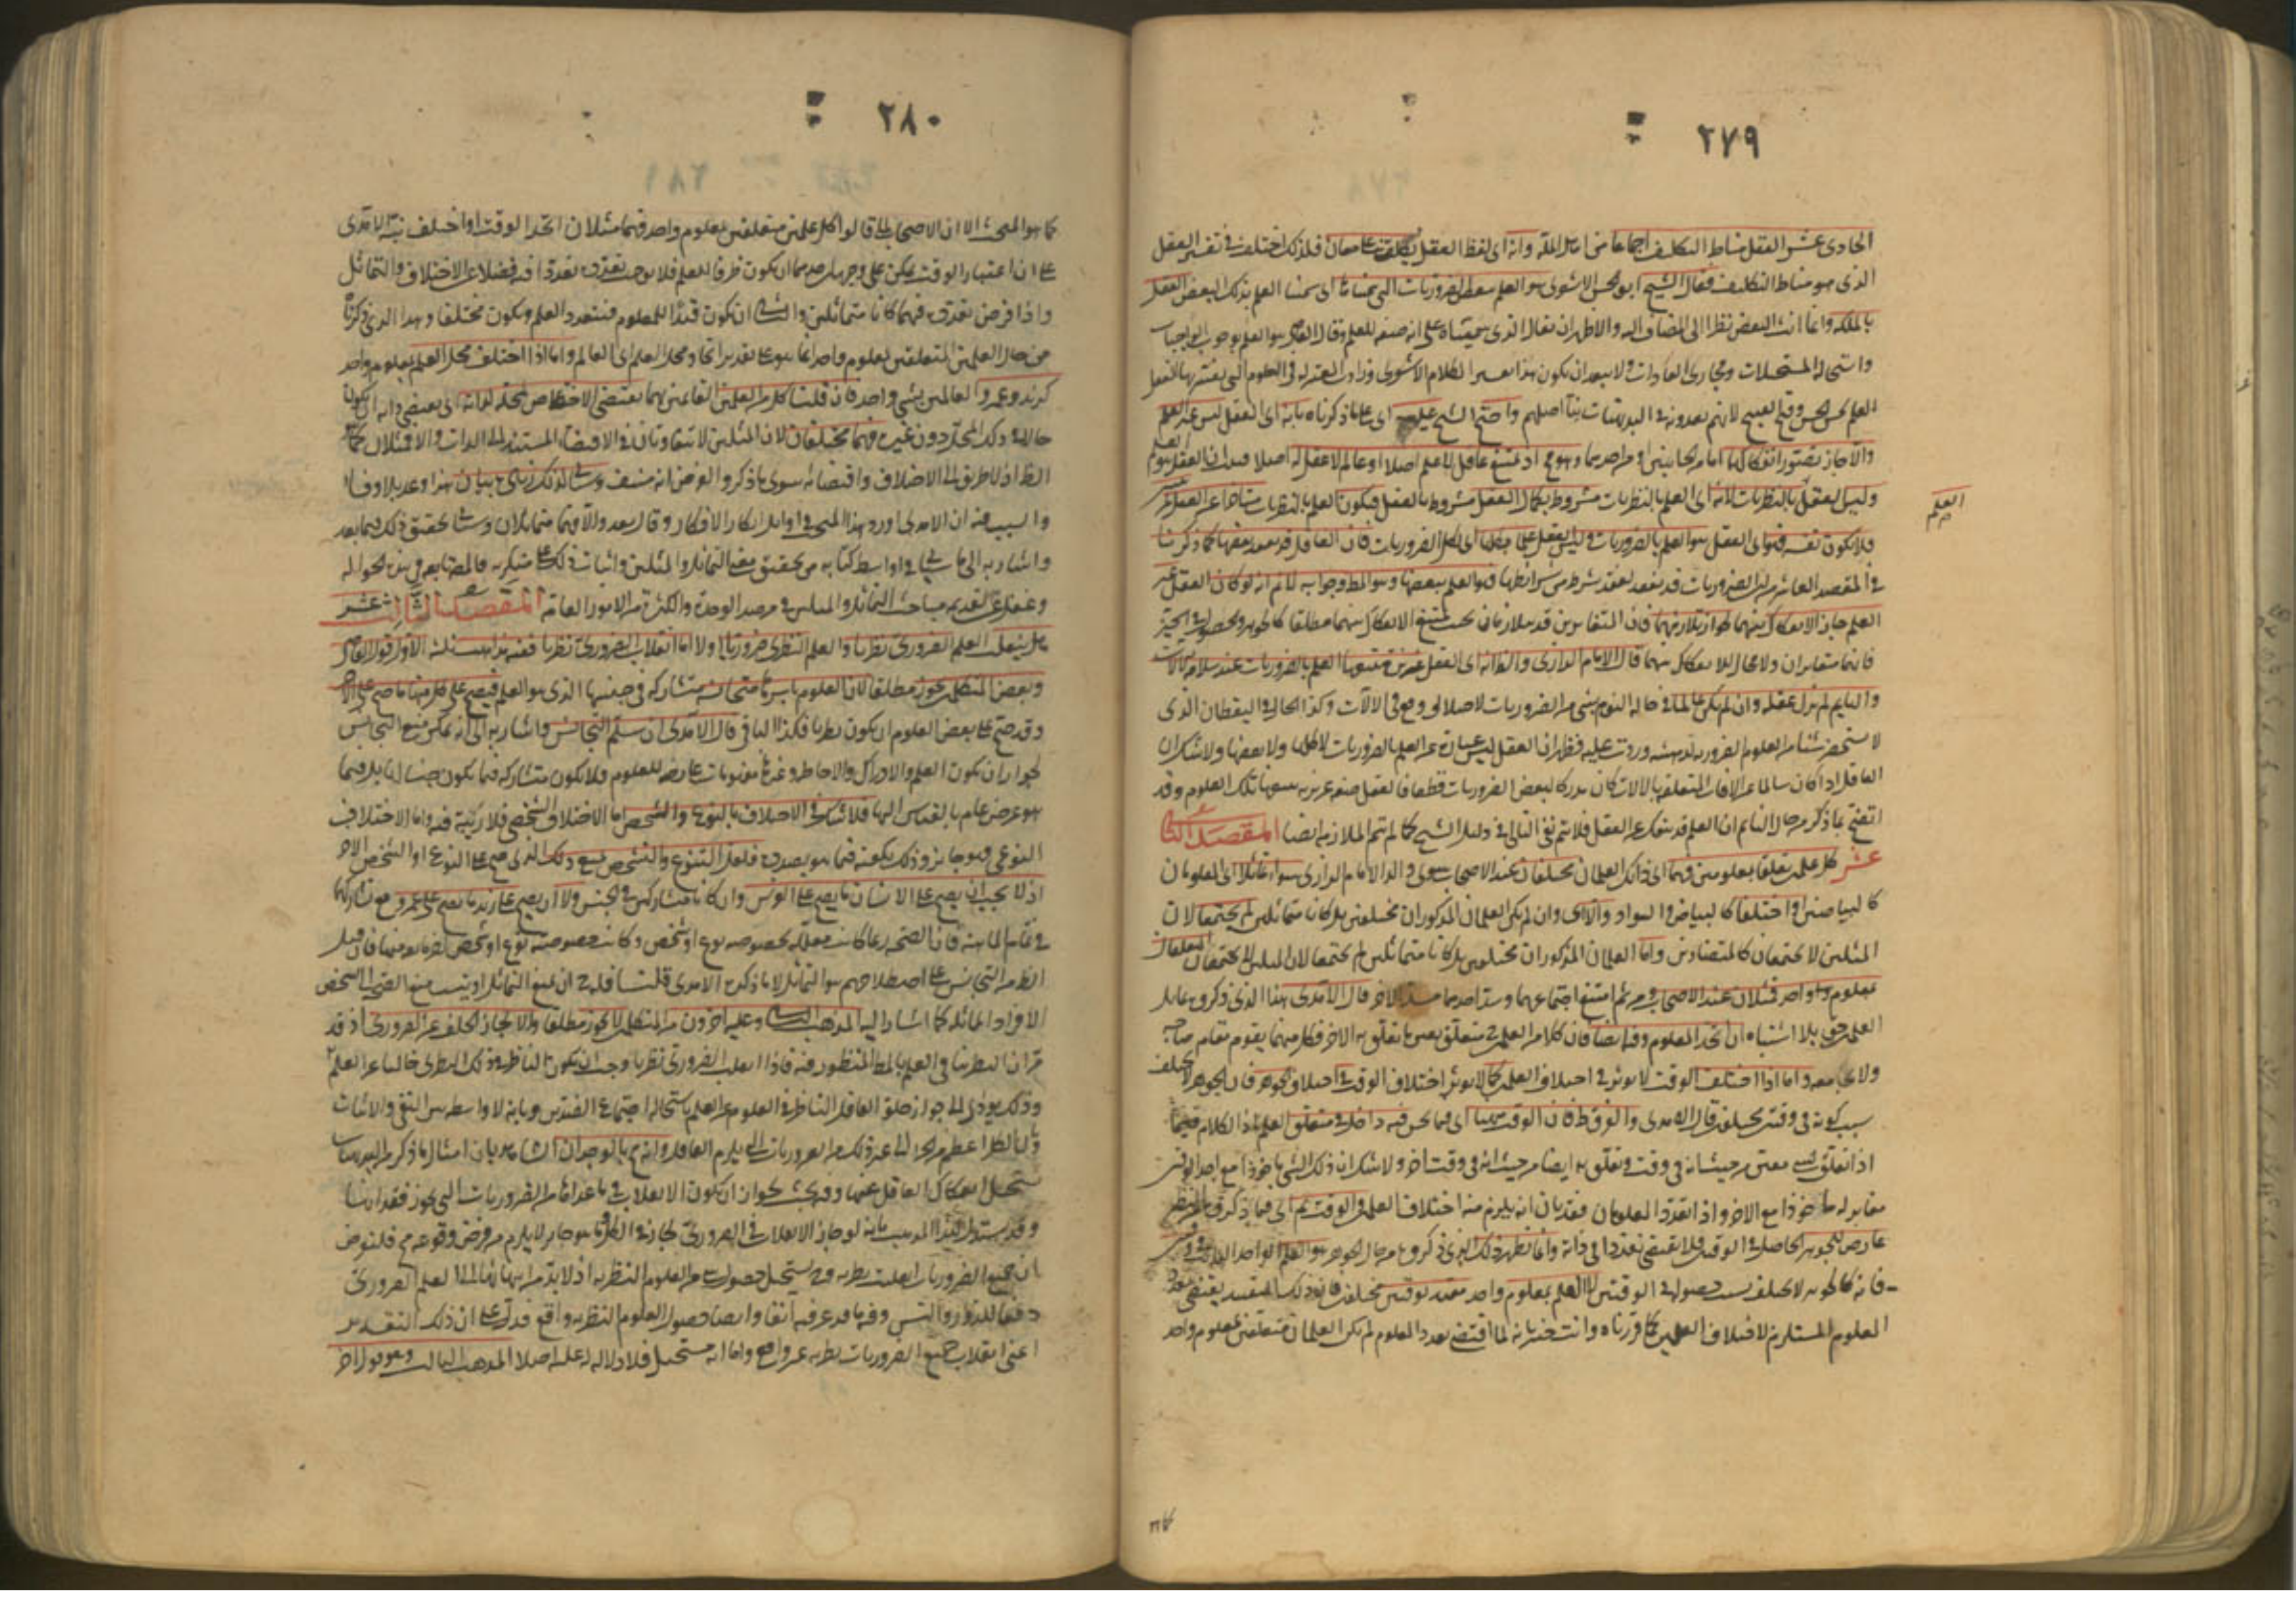 ٢٧٩
الحادى عشر العقل مناط التكليف اجماعا من اهل الملة وانه اى لفظ العقل يطلق على معان فلذلك اختلف فى تفسير العقل
الذى هو مناط التكليف فقال الشيخ ابو الحسن الاشعرى هو العلم ببعض الضروريات التى سميناها اى سمينا العلم بذلك البعض العقل
بالملكة وانما انث البعض نظرا الى المضاف اليه والاظهر ان يقال الذى سميناه على انه صفة للعلم وقال القاضى هو العلم بوجوب الواجبات
واستحالة المستحيلات ومجارى العادات ولا يبعد ان يكون هذا تفسيرا لكلام الاشعرى وزادت المعتزلة فى العلوم التى يفسر بها العقل
العلم بحسن الحسن وقبح القبيح لانهم يعدونه فى البديهيات بناء على اصلهم واحتج الشيخ عليه اى على ما ذكرناه بانه اى العقل ليس غير العلم
والا جاز تصور انفكاكهما اما من الجانبين او من احدهما وهو مح اذ يمتنع عاقل لا علم له اصلا او عالم لا عقل له اصلا فثبت ان العقل هو العلم
وليس العقل العلم بالنظريات لانه اى العلم بالنظريات مشروط بكمال العقل مشروط بالعقل فيكون العلم بالنظريات متأخرا عن العقل
العلم
فلا يكون نفسه فهو اى العقل هو العلم بالضروريات وليس العقل علما بكلها اى بكل الضروريات فان العاقل قد يفقد بعضها كما ذكرنا
فى المقصد العاشر من ان الضروريات قد تفقد لفقد شرط من شرائطها فهو العلم ببعضها وهو المط وجوابه لا نم انه لو كان العقل غير
العلم جاز الانفكاك بينهما لجواز تلازمهما فان المتغايرين قد يتلازمان بحيث يمتنع الانفكاك بينهما مطلقا كالجوهر وحصوله فى الحيز
فانهما متغايران ولا مجال للانفكاك بينهما قال الامام الرازى والظاهر ان العقل غريزة يتبعها العلم بالضروريات عند سلامة الآلات
والنايم لم يزل عقله وان لم يكن عالما فى حالة النوم بشئ من الضروريات لاختلال وقع فى الآلات وكذا الحال فى اليقظان الذى
لا يستحضر شيئا من العلوم الضرورية لدهشة وردت عليه فظهر ان العقل ليس عبارة عن العلم بالضروريات لا كلها ولا بعضها ولا شك ان
العاقل اذا كان سالما عن الآفات المتعلقة بالآلات كان مدركا لبعض الضروريات قطعا فالعقل صفة غريزية يتبعها تلك العلوم وقد
اتضح بما ذكر من حال النايم ان العلم قد ينفك عن العقل فلا يتم نفى التالى فى دليل الشيخ كما لم تتم الملازمة ايضا المقصد الثانى
عشر كل علمين تعلقا بمعلومين فهما اى ذانك العلمان مختلفان عند الاصحاب سوى والد الامام الرازى سواء تماثلا اى المعلومان
كالبياضين او اختلفا كالبياض والسواد والا اى وان لم يكن العلمان المذكوران مختلفين بل كانا متماثلين لم يجتمعا لان
المثلين لا يجتمعان كالمتضادين واما العلمان المتعلقان
بمعلوم واحد فمثلان عند الاصحاب ومن ثم امتنع اجتماعهما وسد احدهما مسد الآخر قال الآمدى هذا الذى ذكروه من تماثل
العلمين حق بلا اشتباه ان اتحد المعلوم وقته ايضا فان كلا من العلمين ح متعلق بعين ما تعلق به الآخر فكل منهما يقوم مقام صاحبه
ولا يجامعه واما اذا اختلف الوقت لا يؤثر فى اختلاف العلمين كما لا يؤثر اختلاف الوقت فى اختلاف الجوهر فان الجوهر لا يختلف
بسبب كونه فى وقتين مختلفين قال الآمدى والفرق ظ فان الوقت ههنا اى فيما نحن فيه داخل فى متعلق العلم
اذا تعلق بشئ معين من حيث انه فى وقت وتعلق به ايضا من حيث انه فى وقت آخر ولا شك ان ذلك الشئ مأخوذا مع احد الوقتين
مغاير له مأخوذا مع الآخر واذا تعدد المعلومان فقد بان انه يلزم منه اختلاف العلمين
عارض للجوهر الحاصل فى الوقت فلا يقتضى تعددا فى ذاته وانما نظير ذلك الذى ذكروه من حال الجوهر هو العلم الواحد الثابت فى وقتين
فانه كالجوهر لا يختلف بسبب حصوله فى الوقتين لا العلم بمعلوم واحد مقيد بوقتين مختلفين فان ذلك التقييد يقتضى تعدد
المعلوم المستلزم لاختلاف العلمين كما قررناه وانت خبير بانه لما اقتضى تعدد المعلوم لم يكن العلمان متعلقين بمعلوم واحد
كما هو
٢٨٠
كما هو المبحث الا ان الاصحاب لما قالوا كل علمين متعلقين بمعلوم واحد فهما مثلان اتحد الوقت او اختلف نبه الآمدى
على ان اعتبار الوقت يمكن على وجهين احدهما ان يكون ظرفا للعلم فلا يوجب تعدده تعددا فيه فضلا عن الاختلاف والتماثل
واذا فرض تعدده فهما كانا متماثلين والثانى ان يكون قيدا للمعلوم فيتعدد العلم ويكون مختلفا وهذا الذى ذكرناه
من حال العلمين المتعلقين بمعلوم واحد انما هو على تقدير اتحاد محل العلم اى العالم واما اذا اختلف محل العلم بمعلوم واحد
كزيد وعمرو العالمين بشئ واحد فان قلنا كل من العلمين القائمين بهما يقتضى الاختصاص بمحله لذاته اى يقتضى ذاته ان يكون
حالا فى ذلك المحل دون غيره فهما مختلفان لان المثلين لا يتفاوتان فى الاقتضاء المستند الى الذات والا فمثلان كما هو
الظ اذ لا طريق الى الاختلاف واقتضائه سوى ما ذكر والفرض انه منتف وسيأتى لذلك زيادة بيان هذا وعد بلا وفاء
والسبب فيه ان الآمدى اورد هذا المبحث فى اوايل ابكار الافكار وقال بعد والا فهما متماثلان وسيأتى تحقيق ذلك فيما بعد
واشار به الى ما يأتى فى اواسط كتابه من تحقيق معنى التماثل والمثلين واثبات ذلك على منكريه فالمصنف تابعه فى هذه الحوالة
وغفل عن تقديم مباحث التماثل والمثلين فى مرصد الوحدة والكثرة من الامور العامة المقصد الثالث عشر
هل ينقلب العلم الضرورى نظريا والعلم النظرى ضروريا او لا اما انقلاب الضرورى نظريا ففيه مذاهب ثلثة الاول قول القاضى
وبعض المتكلمين يجوز مطلقا لان العلوم باسرها متجانسة متشاركة فى جنسها الذى هو العلم فيصح على كل منها ما صح على الآخر
وقد صح على بعض العلوم ان يكون نظريا فكذا الباقى قال الآمدى ان سلم التجانس واشار به الى انه يمكن منع التجانس
لجواز ان يكون العلم والادراك والاحاطة وغيرها مفهومات عارضة للعلوم فلا يكون متشاركة فيما يكون جنسا لها بل فيما
هو عرض عام بالقياس اليها فلا شك فى الاختلاف بالنوع والشخص اما الاختلاف الشخصى فلا ريبة فيه واما الاختلاف
النوعى فهو جائز وذلك يكفينا فيما نحن بصدده فلعل التنوع والتشخص يمنع ذلك الذى صح على النوع او الشخص الآخر
اذ لا يجب ان يصح على الانسان ما يصح على الفرس وان كانا متشاركين فى الجنس ولا ان يصح على زيد ما يصح على عمرو مع تشاركهما
فى تمام الماهية فان الصحة ربما كانت معللة بخصوصية نوع او شخص وكانت خصوصية نوع او شخص آخر مانعة منها فان قيل
الظ من التجانس على اصطلاحهم هو التماثل لا ما ذكره الآمدى قلنا فله ح ان يمنع التماثل
الافراد المماثلة كما اشار اليه المذهب الثانى وعليه آخرون من المتكلمين لا يجوز مطلقا والا لجاز الخلو عن الضرورى اذ قد
مر ان النظر ينافى العلم بالمط المنظور فيه فاذا انقلب الضرورى نظريا وجب ان يكون الناظر فى ذلك النظرى خاليا عن العلم به
وذلك يؤدى الى جواز خلو العاقل الناظر فى العلوم عن العلم باستحالة اجتماع الضدين وبانه لا واسطة بين النفى والاثبات
وبان الكل اعظم من الجزء الى غير ذلك من الضروريات التى يلزم العاقل وانه مح بالوجدان
يستحيل انفكاك العاقل عنها وفيه بحث لجواز ان يكون الانقلاب فى ما عداها من الضروريات التى يجوز فقدانها
وقد يستدل لهذا المذهب بانه لو جاز الانقلاب فى الضرورى لجاز فى الكل وما هو جايز لا يلزم من فرض وقوعه مح فلنفرض
ان جميع الضروريات انقلبت نظرية وح يستحيل حصول شئ من العلوم النظرية اذ لا بد من انتهائها الى العلم الضرورى
دفعا للدور والتس وفيه ما قد عرفته آنفا وايضا حصول العلوم النظرية واقع فدل على ان ذلك التقدير
اعنى انقلاب جميع الضروريات نظرية غير واقع واما انه مستحيل فلا دلالة له عليه اصلا المذهب الثالث وهو قول آخر